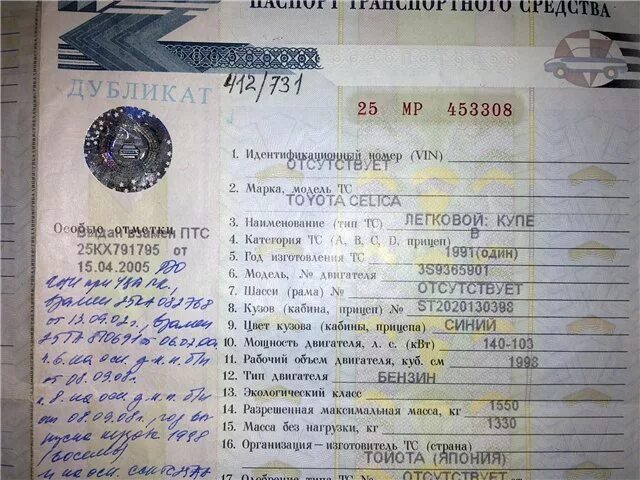 ПАСПОРТ ТРАНСПОРТНОГО СРЕДСТВА
ДУБЛИКАТ
412/731
25 МР 453308
1. Идентификационный номер (VIN)
ОТСУТСТВУЕТ
2. Марка, модель ТС
TOYOTA CELICA
3. Наименование (тип ТС) ЛЕГКОВОЙ: КУПЕ
4. Категория ТС (A, B, C, D, прицеп) B
5. Год изготовления ТС 1991(один)
6. Модель, № двигателя 3S9365901
7. Шасси (рама) № ОТСУТСТВУЕТ
8. Кузов (кабина, прицеп) № ST2020130398
9. Цвет кузова (кабины, прицепа) СИНИЙ
10. Мощность двигателя, л. с. (кВт) 140-103
11. Рабочий объем двигателя, куб. см 1998
12. Тип двигателя БЕНЗИН
13. Экологический класс
14. Разрешенная максимальная масса, кг 1550
15. Масса без нагрузки, кг 1330
16. Организация—изготовитель ТС (страна)
ТОЙОТА (ЯПОНИЯ)
17. Одобрение типа ТС № ОТСУТСТВУЕТ от
Особые отметки
Выдан взамен ПТС
25КХ791795 от
15.04.2005
взамен 25
от 13.09.02г., взамен
25ТА 810691 от 06.02.00
г. 6. на осн. д.к.п. б/н
от 08.09.08г.
г. 8. на осн. д.к.п. б/н
от 08.09.08г., год вы
пуска кузова 1998
(восемь)
и на осн.